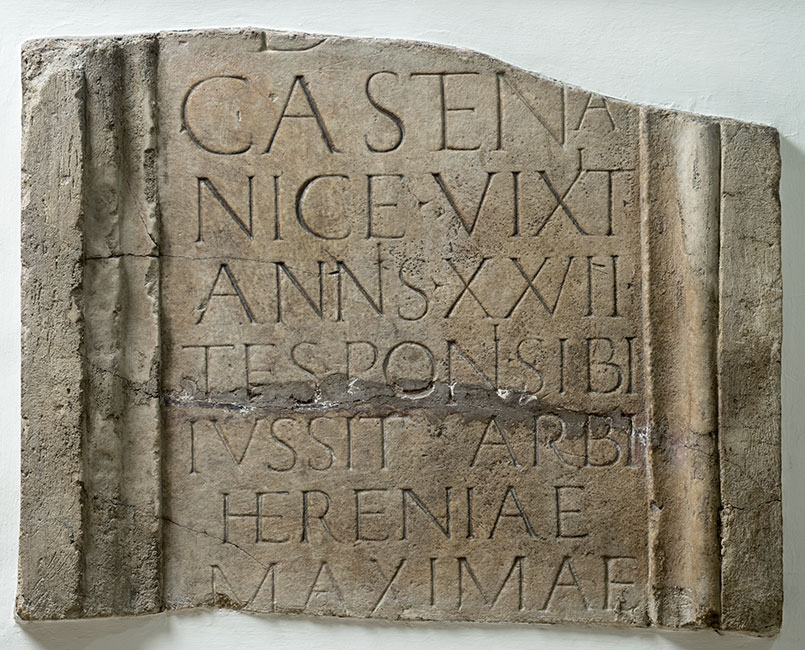 CASENA
NICE·VIXT
ANNIS·XXVII
TESPONSIBI
IVSSIT ARBI
HERENIAE
MAXIMAE